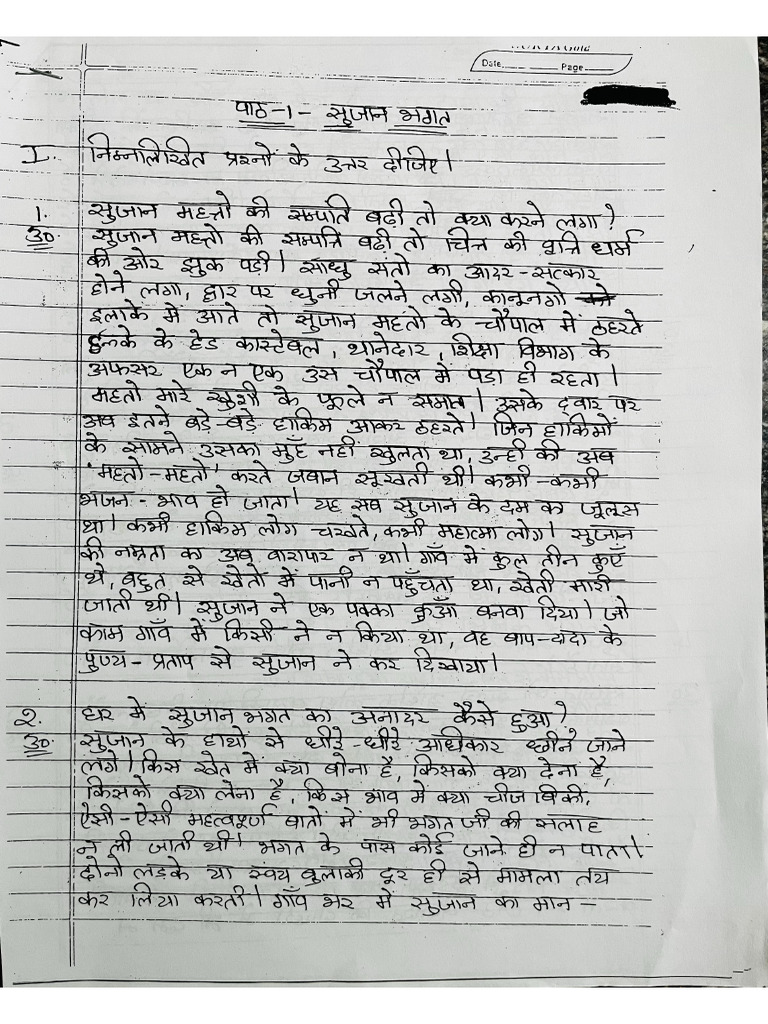 Date Page
पाठ-1- सुजान भगत
I. निम्नलिखित प्रश्नों के उत्तर दीजिए।
1. सुजान महतो की सम्पति बढ़ी तो क्या करने लगा?
उ०. सुजान महतो की सम्पत्ति बढ़ी तो चित्त की वृत्ति धर्म
की ओर झुक पड़ी। साधु संतो का आदर-सत्कार
होने लगा, द्वार पर धुनी जलने लगी, कानूनगो
इलाके में आते तो सुजान महतो के चौपाल में ठहरते
हल्के के हेड कास्टेबल, थानेदार, शिक्षा विभाग के
अफसर एक न एक उस चौपाल में पडा ही रहता।
महतो मारे खुशी के फूले न समाते। उसके द्वार पर
अब इतने बड़े-बड़े हाकिम आकर ठहरते। जिन हाकिमों
के सामने उसका मुँह नहीं खुलता था, उन्ही की अब
'महतो-महतो' करते जबान सूखती थी। कभी-कभी
भजन-भाव हो जाता। यह सब सुजान के दम का जूलूस
था। कभी हाकिम लोग चखते, कभी महात्मा लोग। सुजान
की नम्रता का अब वारापार न था। गाँव में कुल तीन कुएँ
थे, बहुत से खेतों में पानी न पहुँचता था, खेती मारी
जाती थी। सुजान ने एक पक्का कुआँ बनवा दिया। जो
काम गाँव में किसी ने न किया था, वह बाप-दादा के
पुण्य-प्रताप से सुजान ने कर दिखाया।
2. घर में सुजान भगत का अनादर कैसे हुआ?
उ०. सुजान के हाथों से धीरे-धीरे अधिकार छीने जाने
लगे। किस खेत में क्या बोना है, किसको क्या देना है,
किसको क्या लेना है, किस भाव में क्या चीज बिकी,
ऐसी-ऐसी महत्वपूर्ण बातों में भी भगत जी की सलाह
न ली जाती थी। भगत के पास कोई जाने ही न पाता।
दोनो लडके या स्वयं बुलाकी दूर ही से मामला तय
कर लिया करती। गाँव भर में सुजान का मान-